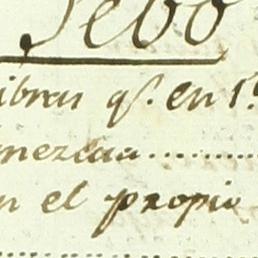 Sebo
ibras qᵉ. en 1º
mezcla..........
n el propio
..........